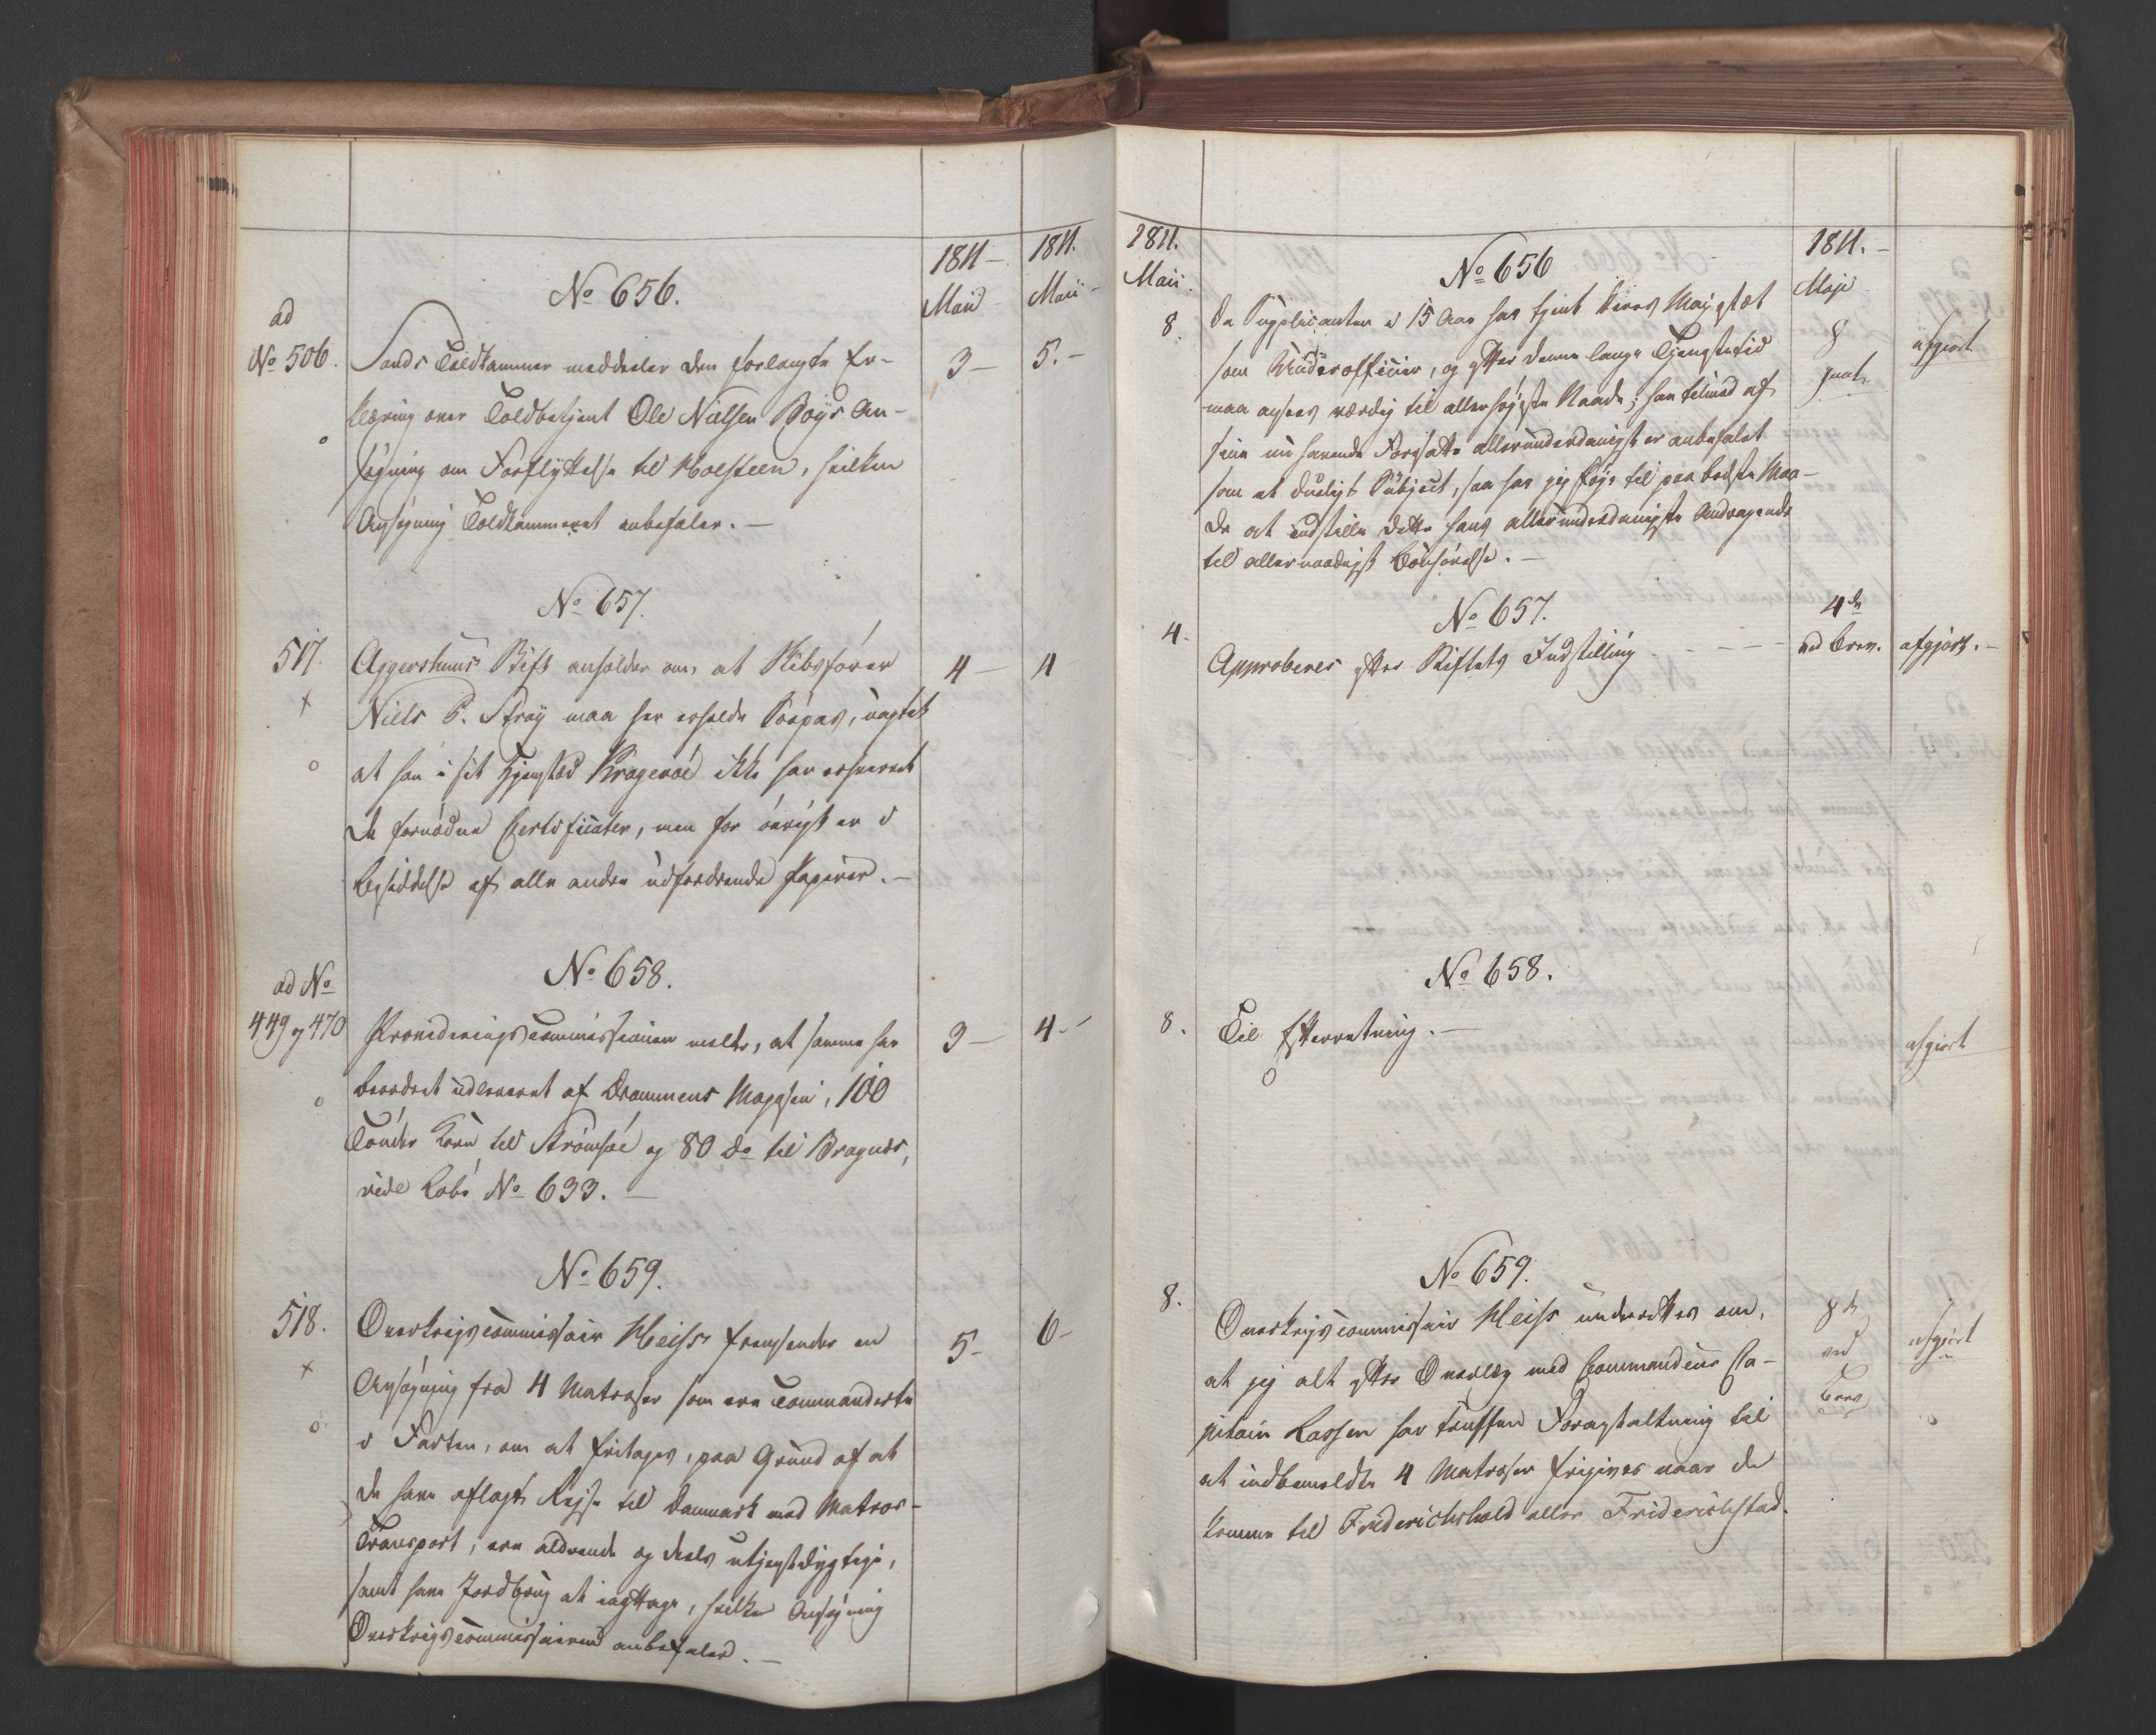 1811 –
Maii
1811.
Maii –
No 656.
ad
No 506.
Sands Toldkammer meddeeler den forlangte Er-
3 –
5. –
klæring over Toldbetjent Ole Nielsen Boys An-
søgning om Forflyttelse til Holsteen, hvilken
Ansøgning Toldkammeret anbefaler. –
No 657.
517.
Aggershuus Stift anholder om, at Skibsfører
4 –
4
Niels P. Stray maa her erholde Søepas, uagtet
at han i sit Hjemsted Krageröe ikke har erhvervet
de fornødne Certificater, men for øvrigt er i
Besiddelse af alle andre udfordrende Papirer. –
No 658.
ad No
449 og 470
Provideringscommissionen melder, at samme har
3 –
4 –
beordret udleveret af Drammens Magasin, 100
Tønder Korn til Strømsøe og 80 do til Bragnæs,
vide Lobe No 633. –
No 659.
518.
Overkrigscommissair Heiss fremsender en
5 –
6 –
Ansøgning fra 4 Matroser som ere commanderte
i Farten, om at fritages, paa Grund af at
de have aflagt Rejse til Danmark med Matros-
Transport, ere aldrende og deels utjenstdygtige,
samt have Jordbrug at iagttage, hvilken Ansøgning
Overkrigscommissairen anbefaler. –
1811.
Maii.
1811. –
Maji
No 656
8.
Da Supplicanten i 15 Aar har tjent Deres Majestæt
8
afgiort
som Underofficier, og efter denne lange Tjenstetid
maa ansees værdig til allerhøyeste Naade; han tilmed af
sine nu havende Foresatte allerunderdanigst er anbefalet
som et dueligt Subject, saa har jeg føje til paa bedste Maa-
de at indstille dette hans allerunderdanigste Andragende
til allernaadigst Bønhørelse. –
No 657.
4.
4de
Approberes efter Stiftets Indstilling – – – –
ved Brev.
afgjort. –
No 658.
8.
Til Efterretning. –
afgiort
No 659.
8.
Overkrigscommissair Heiss underrettes om,
8de
afgiort
at jeg alt efter Overlæg med Commandeur Ca-
ved
pitain Lassen har truffen Foranstaltning til
Brev
at indbemeldte 4 Matroser frigives naar de
komme til Friderichshald eller Friderichstad.